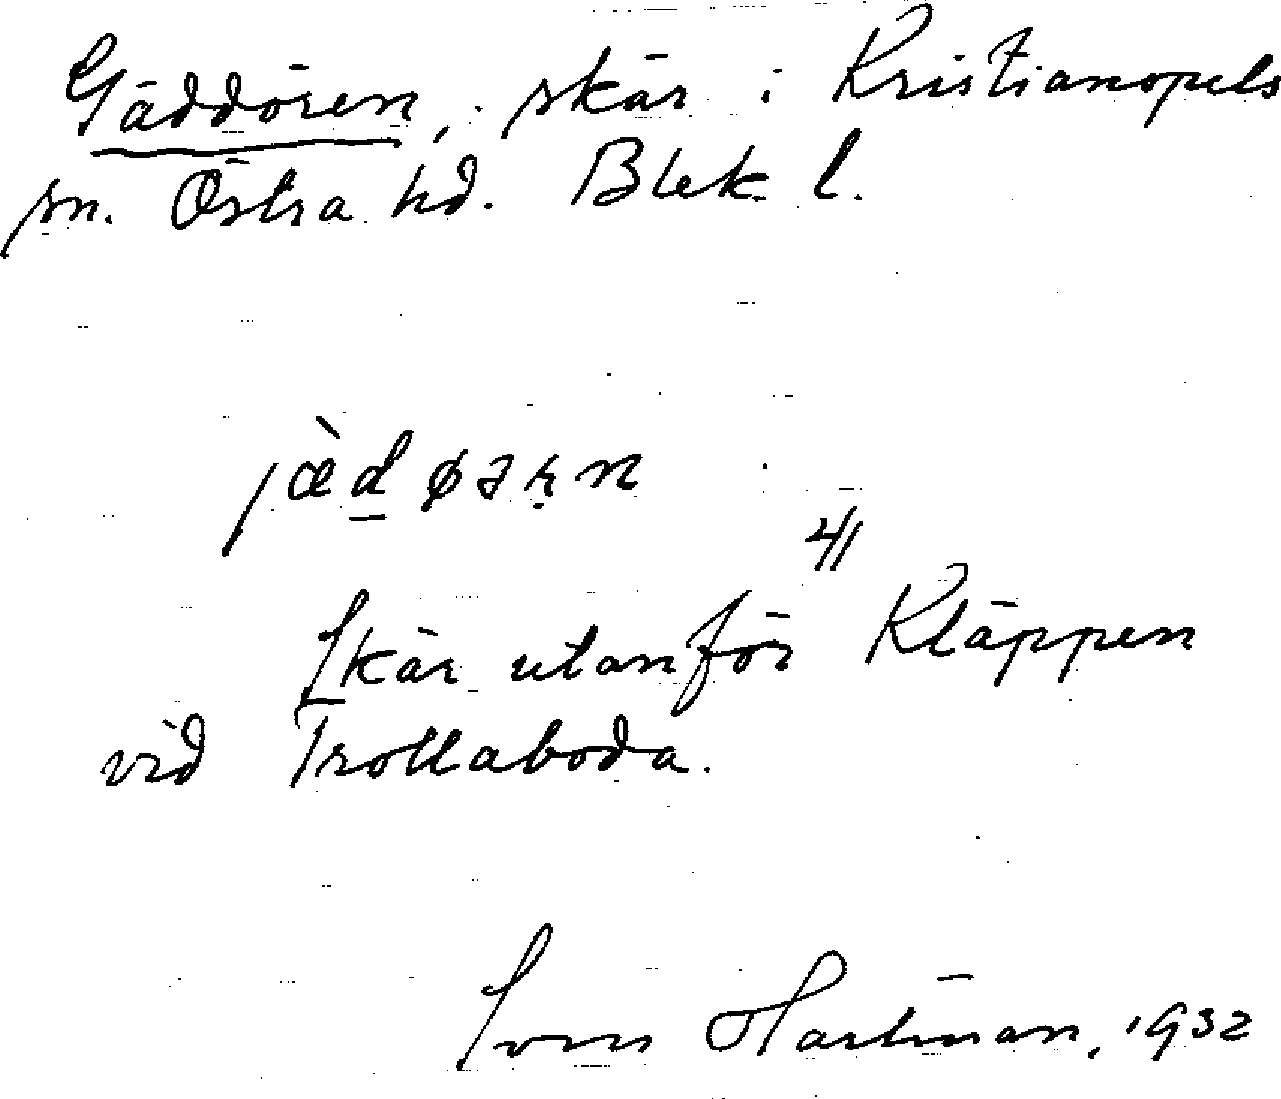 Gäddören, skär i Kristianopels
sn. Östra hd. Blek. l.
jæ̀d̲øəṛn
41
Skär utanför Kläppen
vid Trollaboda.
Hartman, 1932